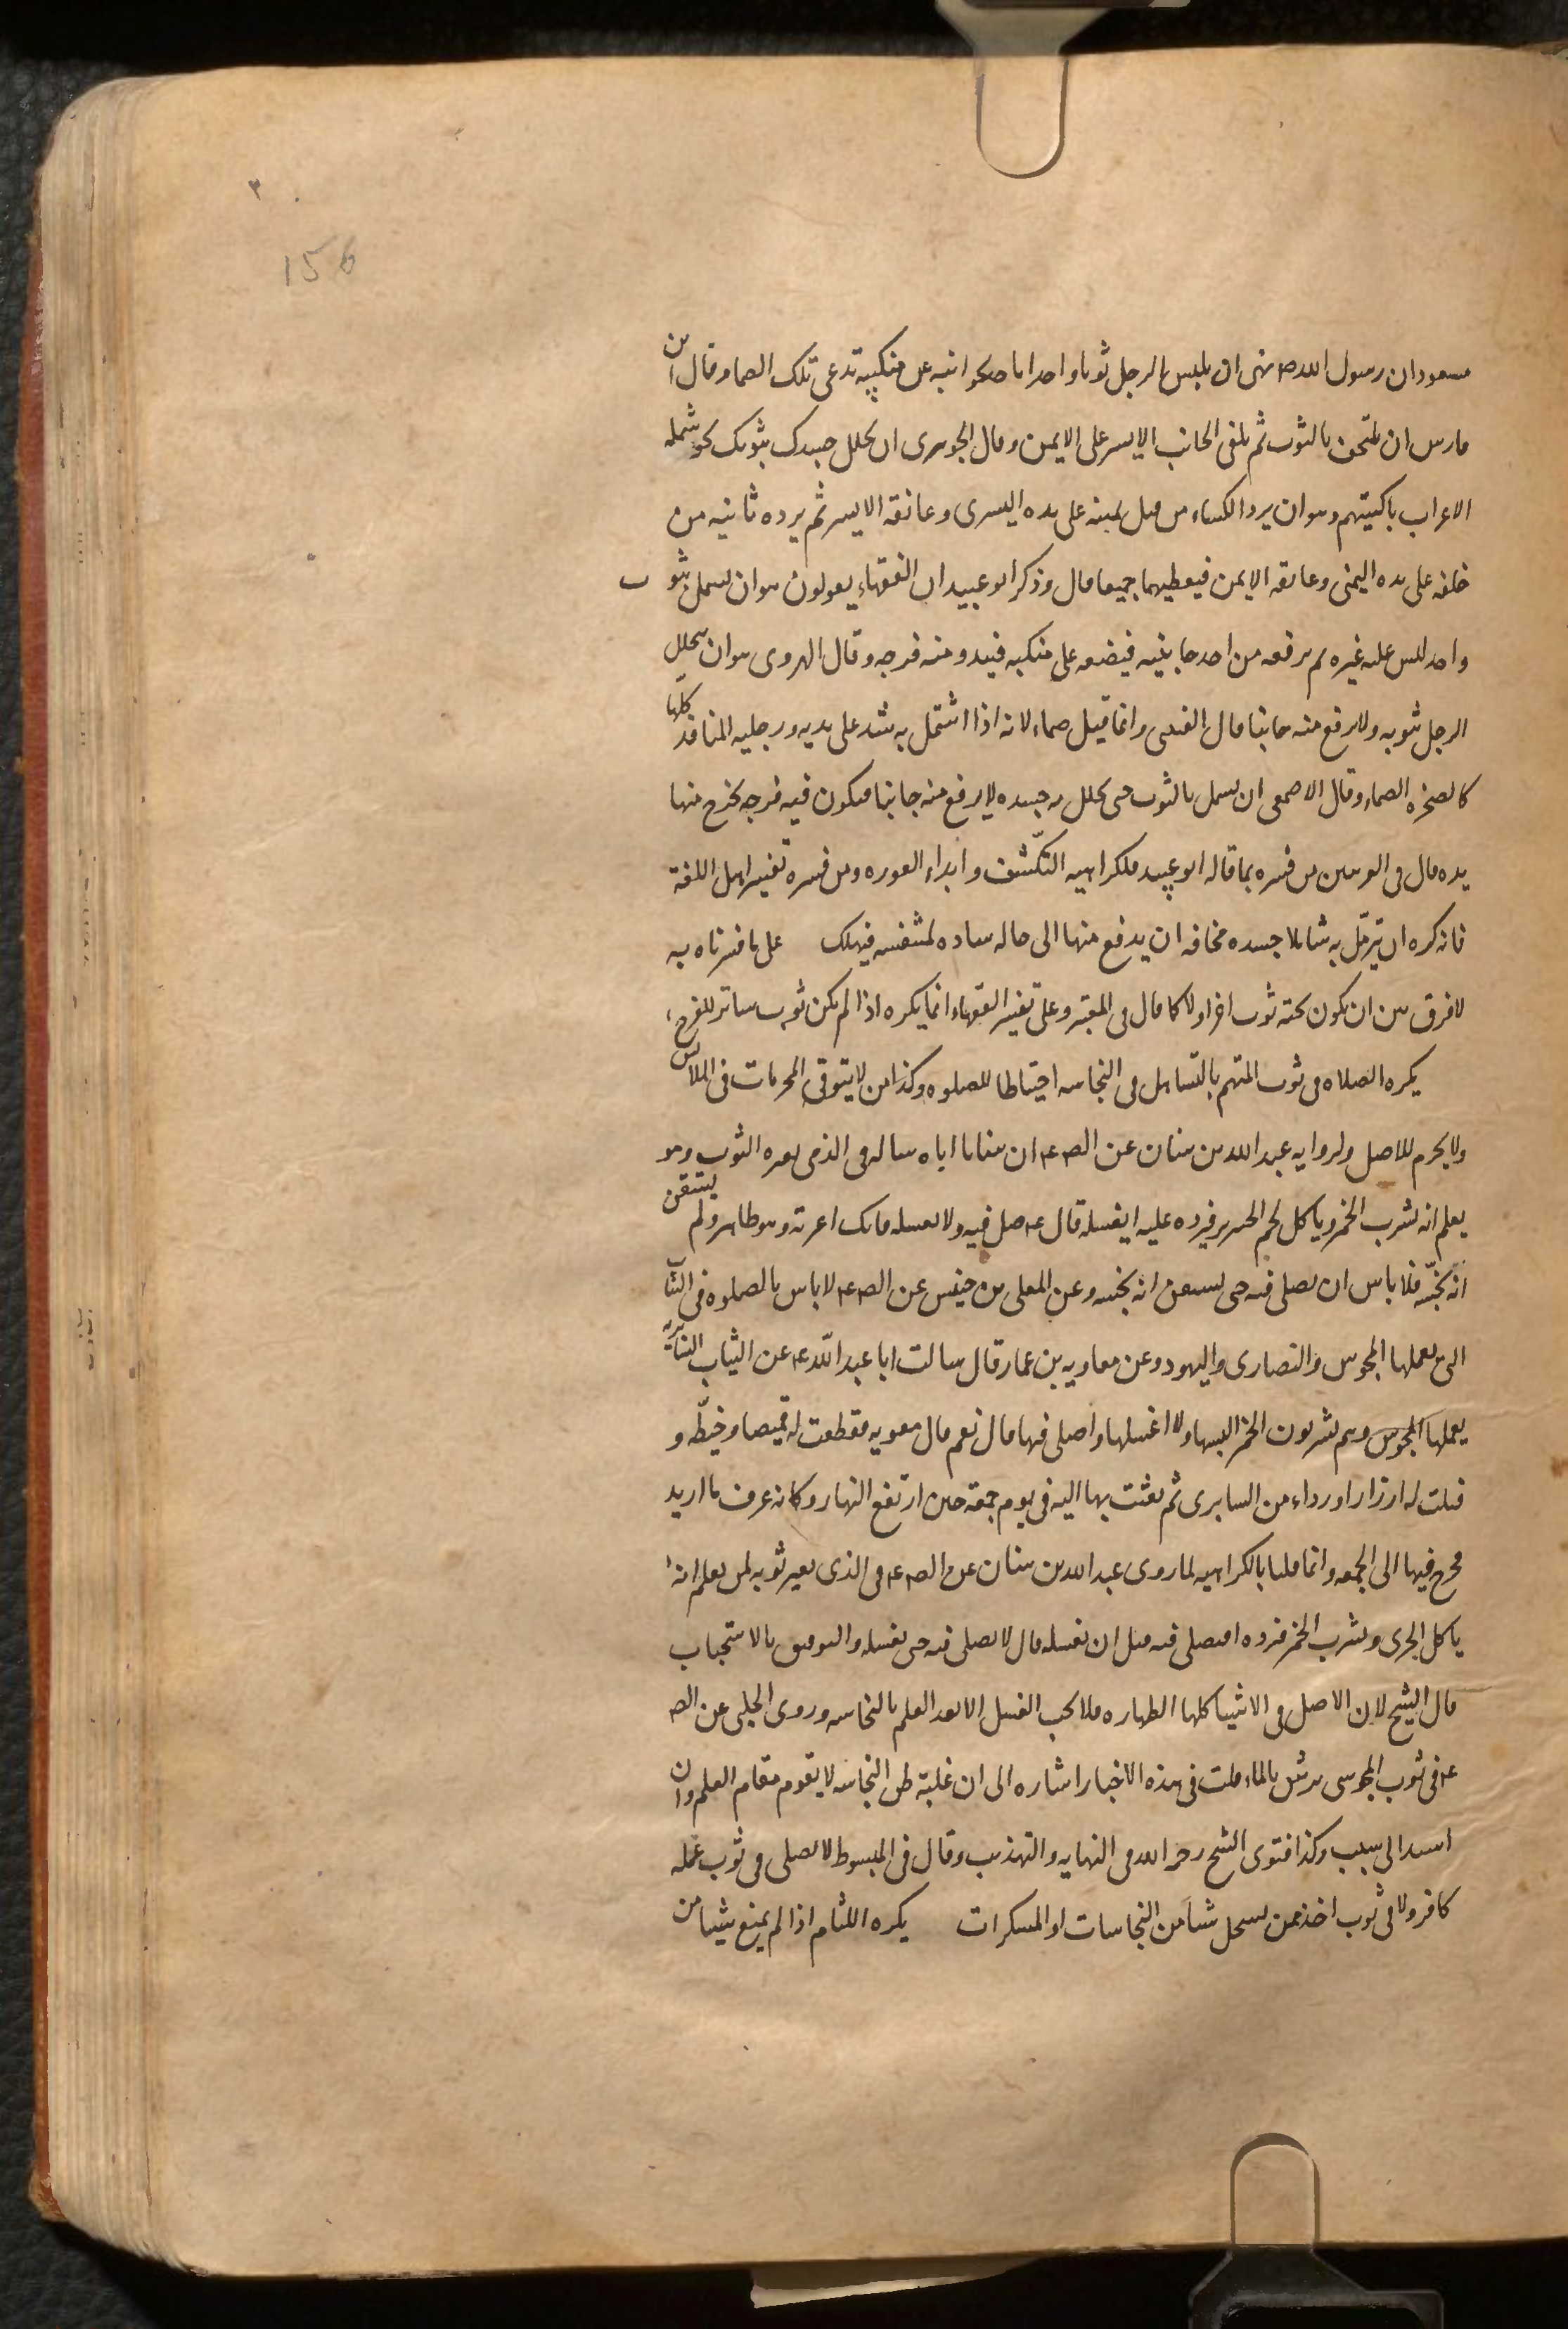 ٣
156
مسعود ان رسول الله ص نهى ان يلبس الرجل ثوبا واحدا ياخذ بجوانبه عن منكبيه تدعى تلك الصما وقال ابن
فارس ان يلتحف بالثوب ثم يلقى الجانب الايسر على الايمن وقال الجوهرى ان تجلل جسدك بثوبك نحو شملة
الاعراب باكسيتهم وهو ان يرد الكساء من قبل يمينه على يده اليسرى وعاتقه الايسر ثم يرده ثانيه من
خلفه على يده اليمنى وعاتقه الايمن فيغطيهما جميعا قال وذكر ابو عبيد ان الفقهاء يقولون هو ان يشتمل بثوب
واحد ليس عليه غيره ثم يرفعه من احد جانبيه فيضعه على منكبيه فيبدو منه فرجه وقال الهروى هو ان يتجلل
الرجل بثوبه ولا يرفع منه جانبا قال القتيبى وانما قيل صماء لانه اذا اشتمل به شد على يديه ورجليه المنافذ كلها
كالصخره الصماء وقال الاصمعى ان يشتمل بالثوب حتى يجلل به جسده لا يرفع منه جانبا فيكون فيه فرجه يخرج منها
يده قال فى الغريبين من فسره بما قاله ابو عبيد فلكراهيه التكشف وابداء العوره ومن فسره تفسير اهل اللغة
فانه كره ان يتزمّل به شاملا جسده مخافه ان يدفع منها الى حاله ساده لمتنفسه فيهلك على ما فسرناه به
لا فرق بين ان يكون تحته ثوب اخر اولا كما قال فى المعتبر وعلى تفسير الفقهاء انما يكره اذا لم يكن ثوب ساتر للفرج
يكره الصلاه فى ثوب المتهم بالتساهل فى النجاسه احتياطا للصلوه وكذا من لا يتوقى المحرمات فى الملابس
ولا يحرم للاصل ولروايه عبد الله بن سنان عن الص ع ان سنانا اباه ساله فى الذمى يعيره الثوب وهو
يعلم انه يشرب الخمر وياكل لحم الخنزير فيرده عليه ايغسله قال ع صل فيه ولا تغسله فانك اعرته وهو طاهر ولم يستيقن
انه نجّسه فلا باس ان يصلى فيه حتى يستيقن انه نجسه وعن المعلى بن خنيس عن الص ع لا باس بالصلوه فى الثياب
التى يعملها المجوس والنصارى واليهود وعن معاويه بن عمار قال سالت ابا عبد الله ع عن الثياب السابريه
يعملها المجوس وهم يشربون الخمر البسها ولا اغسلها واصلى فيها قال نعم قال معويه فقطعت له قميصا وخيّطه و
فتلت له ازرارا ورداء من السابرى ثم بعثت بها اليه فى يوم جمعة حين ارتفع النهار وكانه عرف ما اريد
فخرج فيها الى الجمعه وانما قلنا بالكراهيه لما روى عبد الله بن سنان عن الص ع فى الذى يعير ثوبه لمن يعلم انه
ياكل الجرى ويشرب الخمر فيرده ايصلى فيه قبل ان يغسله قال لا يصلى فيه حتى يغسله والتوفيق بالاستحباب
قال الشيخ لان الاصل فى الاشيا كلها الطهاره فلا يجب الغسل الا بعد العلم بالنجاسه وروى الحلبى عن الص
ع فى ثوب المجوسى يرش بالماء قلت فى هذه الاخبار اشاره الى ان غلبة ظن النجاسه لا يقوم مقام العلم وان
استند الى سبب وكذا فتوى الشيخ رحمه الله فى النهايه والتهذيب وقال فى المبسوط لا يصلى فى ثوب عمله
كافر ولا فى ثوب اخذ ممن يستحل شيا من النجاسات او المسكرات يكره اللثام اذا لم يمنع شيئا من